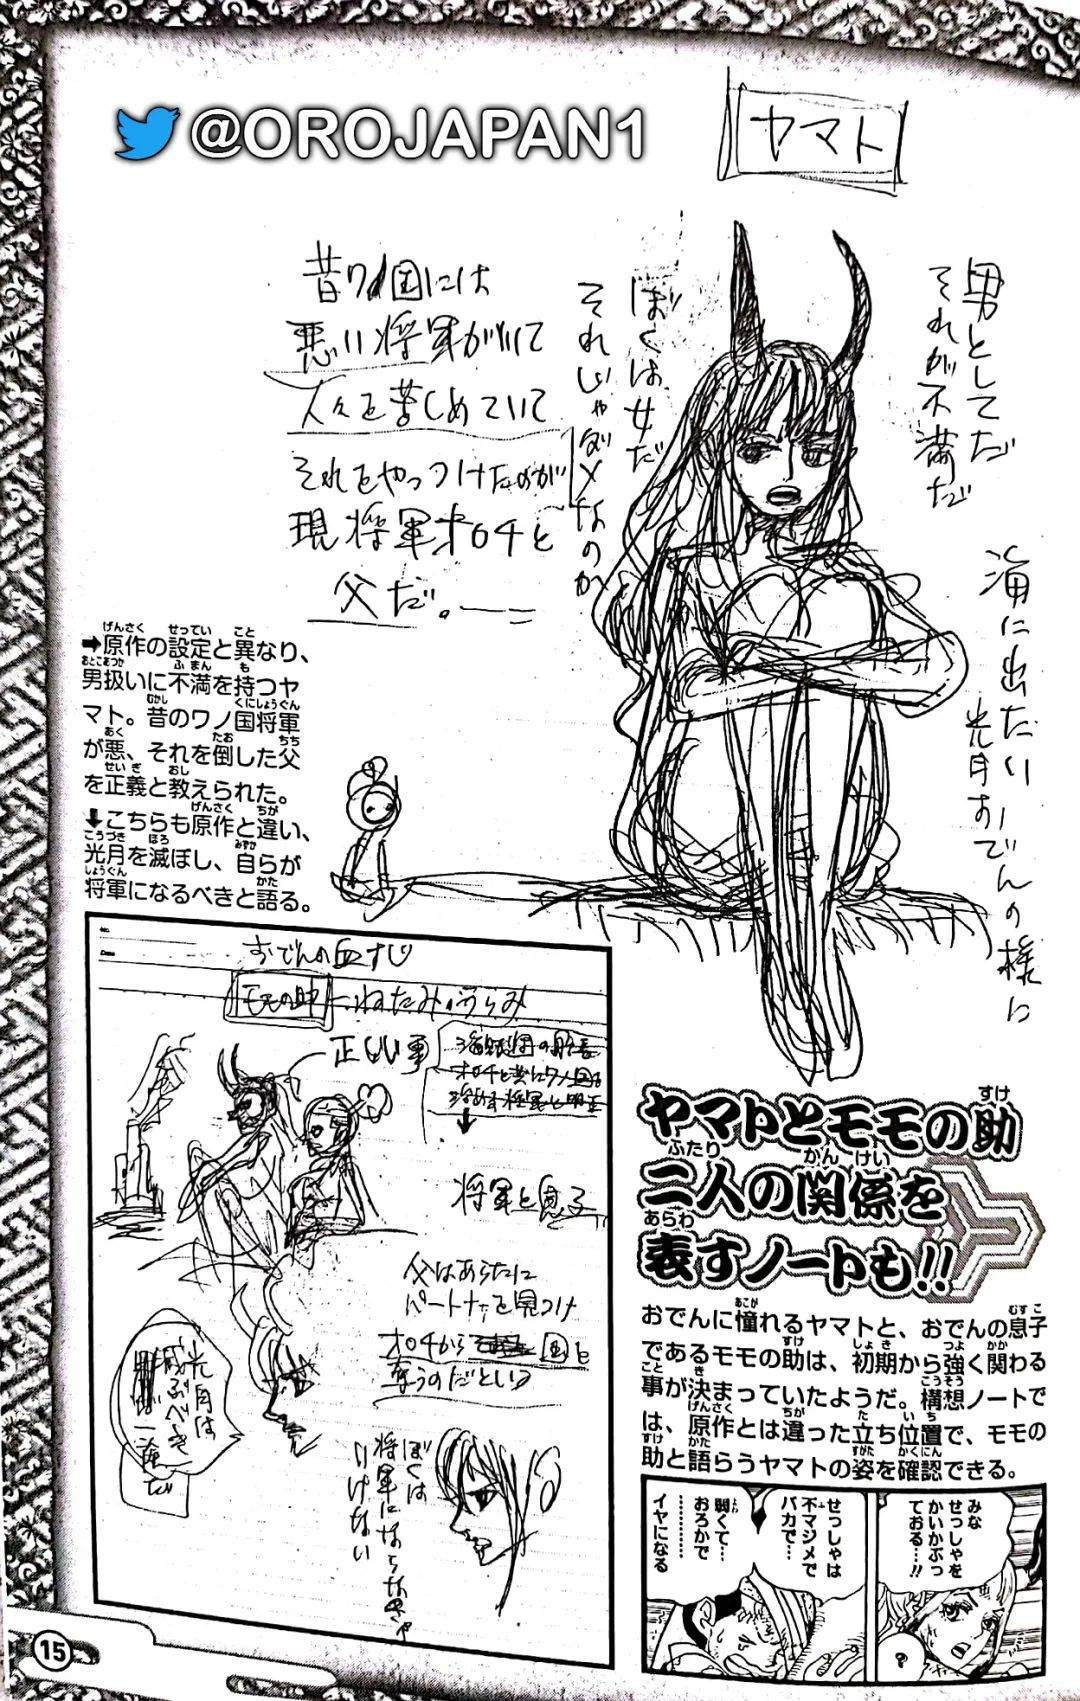 @OROJAPAN1
ヤマト
男としてだ
それが不満だ
ぼくは女だ
それじゃダメなのか
海に出たい
光月おでんの様に
昔ワノ国には
悪い将軍がいて
人々を苦しめていて
それをやっつけたのが
現将軍オロチと
父だ。
➡原作の設定と異なり、
男扱いに不満を持つヤ
マト。昔のワノ国将軍
が悪、それを倒した父
を正義と教えられた。
⬇こちらも原作と違い、
光月を滅ぼし、自らが
将軍になるべきと語る。
おでんの血すじ
モモの助 ねたみ・うらみ
正しい事
将軍と息子
父はあらたに
パートナーを見つけ
オロチから 国を
奪うのだという
光月は
滅ぶべき
ぼくは
将軍にならなきゃ
いけない
ヤマトとモモの助
二人の関係を
表すノートも!!
おでんに憧れるヤマトと、おでんの息子
であるモモの助は、初期から強く関わる
事が決まっていたようだ。構想ノートで
は、原作とは違った立ち位置で、モモの
助と語らうヤマトの姿を確認できる。
みな
せっしゃを
かいかぶっ
ておる…!!
?
せっしゃは
不マジメで
バカで…
弱くて…
おろかで
…………
イヤになる
15